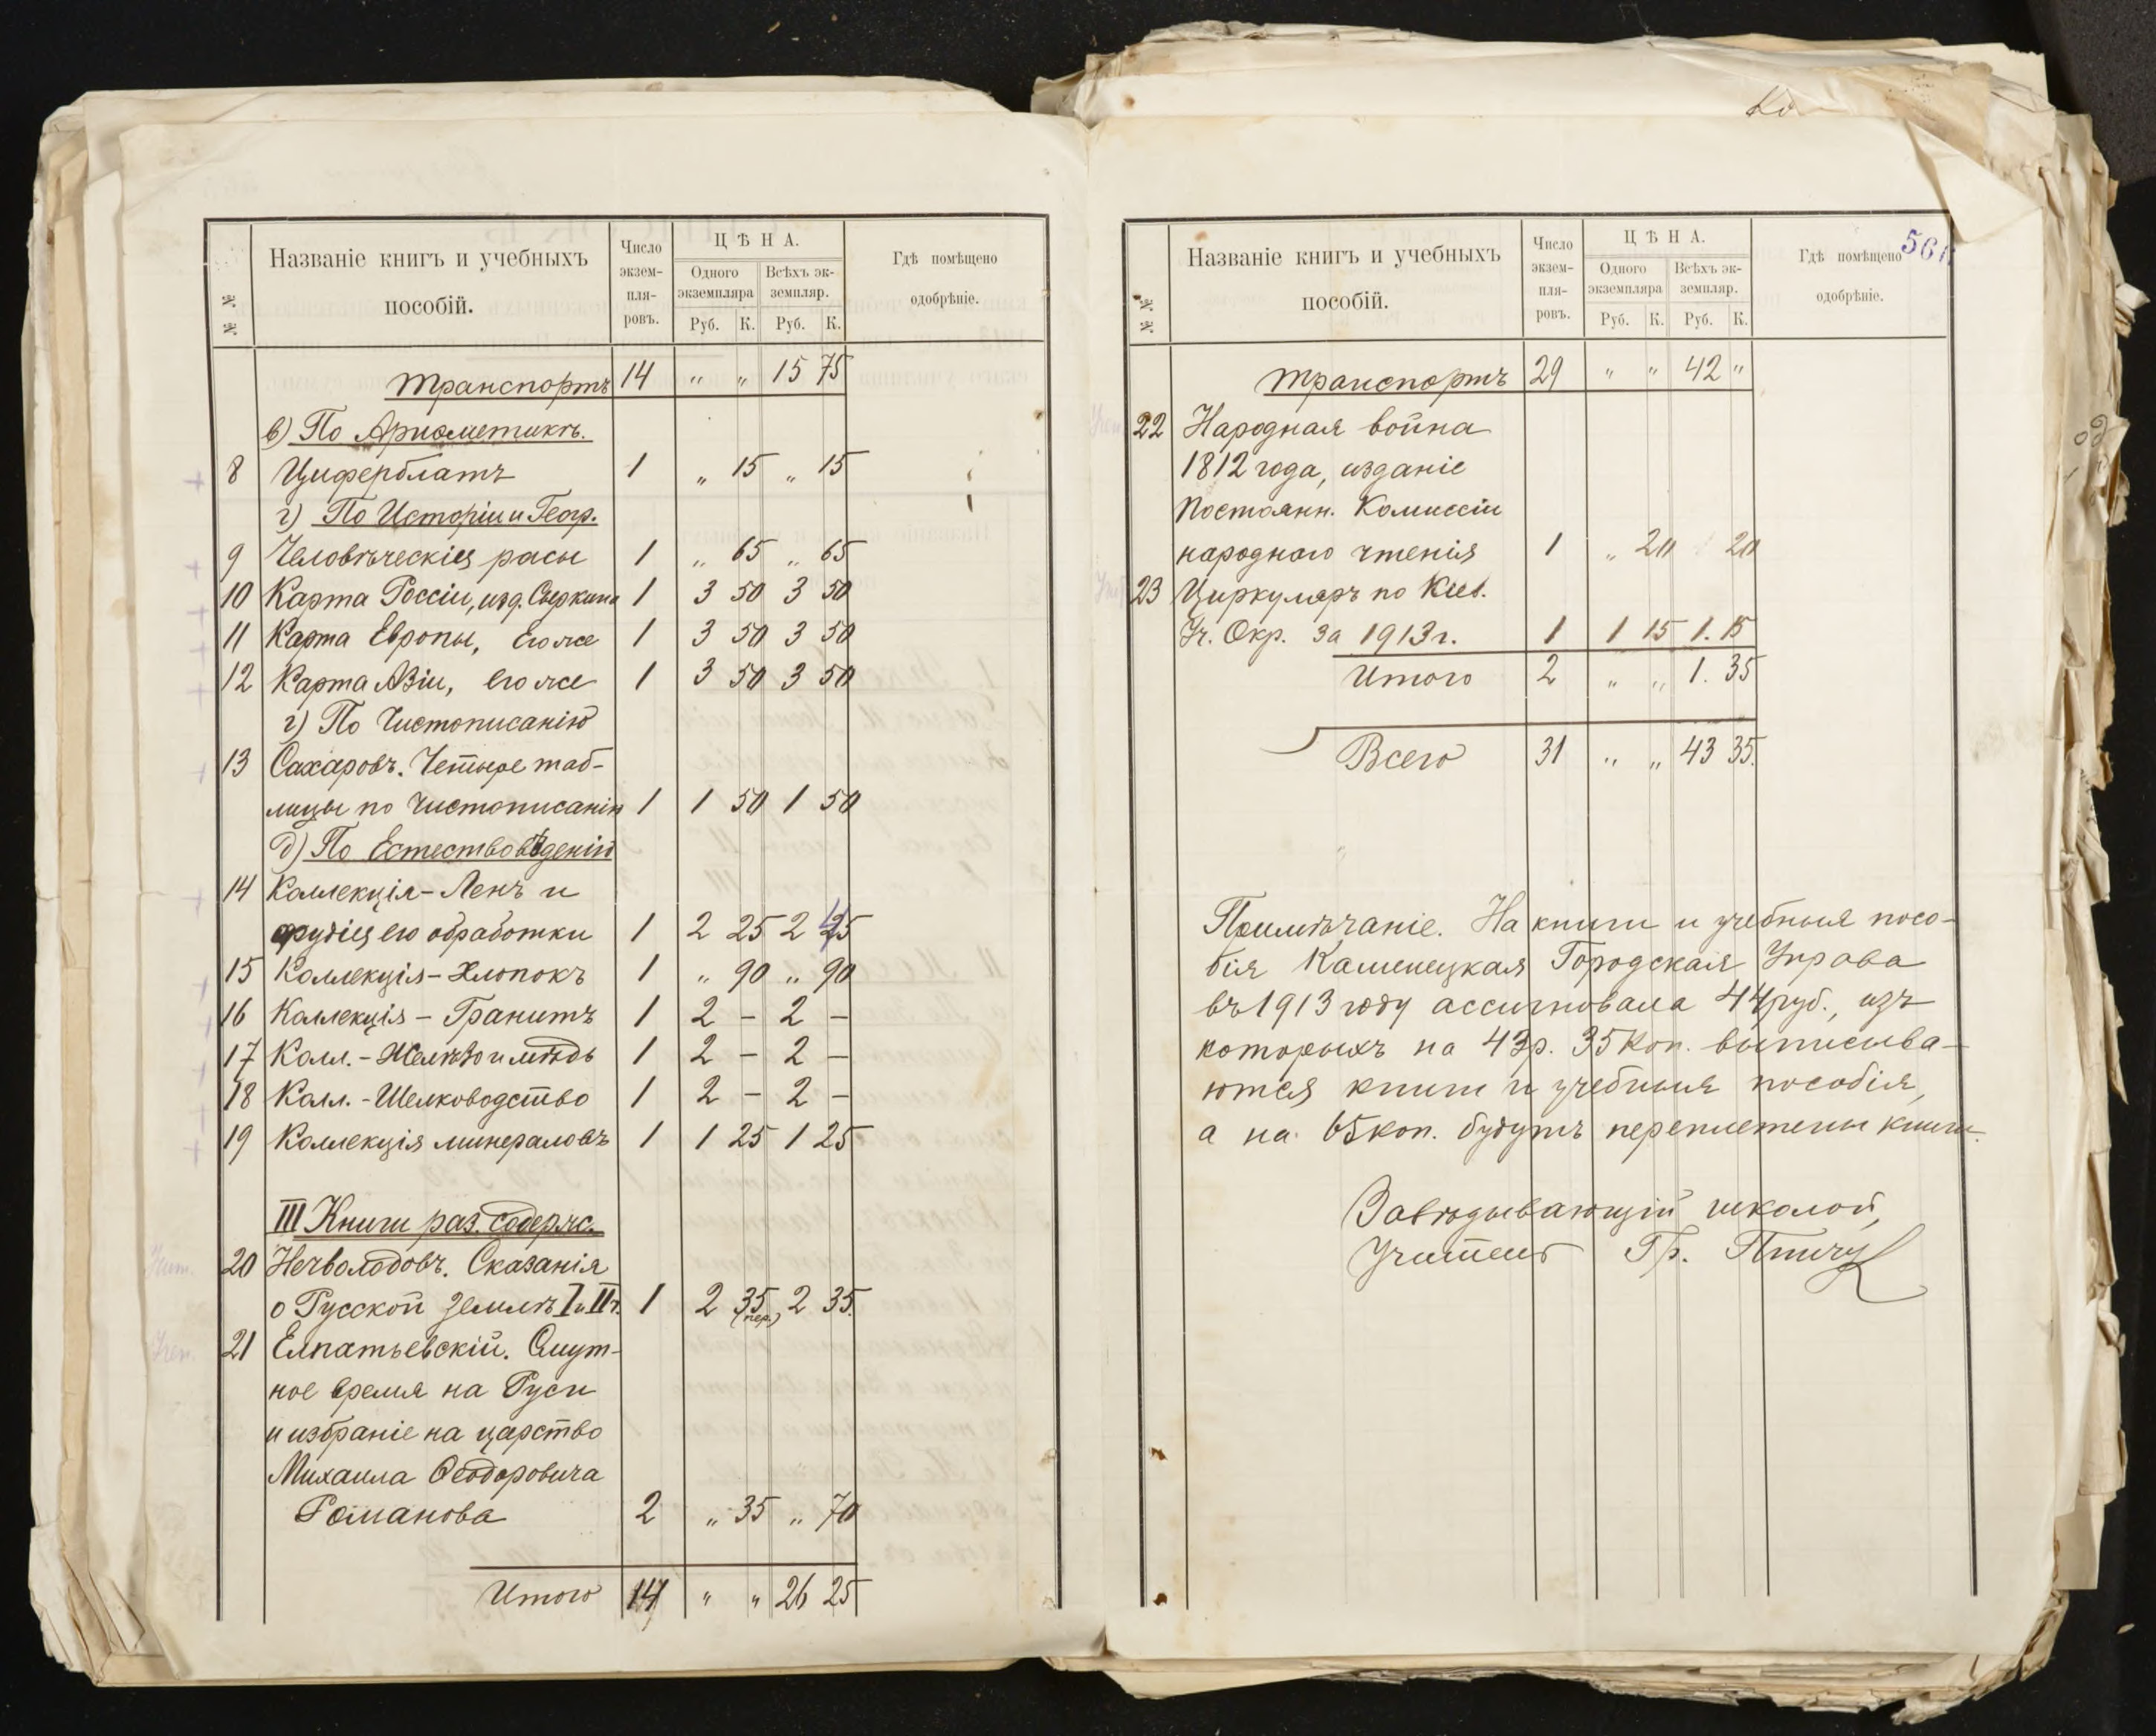 № №
Названіе книгъ и учебныхъ
пособій.
Число
экзем-
пля-
ровъ.
ЦѢНА.
Одного
экземпляра
Всѣхъ эк-
земпляр.
Руб. К. Руб. К.
Гдѣ помѣщено
одобрѣніе.
Транспортъ 14 " " 15 75
в) По Ариѳметикѣ.
8 Циферблатъ 1 " 15 " 15
г) По Исторіи и Геогр.
9 Человѣческія расы 1 " 65 " 65
10 Карта Россіи, изд. 1 3 50 3 50
11 Карта Европы, его же 1 3 50 3 50
12 Карта Азіи, его же 1 3 50 3 50
г) По Чистописанію
13 Сахаровъ. Четыре таб-
лицы по Чистописанію 1 1 50 1 50
д) По Естествовѣденію
14 Коллекція - Ленъ и
орудія его обработки 1 2 25 2
15 Коллекція - Хлопокъ 1 " 90 " 90
16 Коллекція - Гранитъ 1 2 - 2 -
17 Колл. - Желѣзо и мѣдь 1 2 - 2 -
18 Колл. - Шелководство 1 2 - 2 -
19 Коллекція минераловъ 1 1 25 1 25
III Книги раз. содерж.
20 Нечволодовъ. Сказанія
о Русской землѣ I и II ч. 1 2 35 (пер.) 2 35.
21 Елпатьевскій. Смут-
ное время на Руси
и избраніе на царство
Михаила Ѳеодоровича
Романова 2 " 35 " 70
Итого 14 " " 26 25
561
№ №
Названіе книгъ и учебныхъ
пособій.
Число
экзем-
пля-
ровъ.
ЦѢНА.
Одного
экземпляра
Всѣхъ эк-
земпляр.
Руб. К. Руб. К.
Гдѣ помѣщено
одобрѣніе.
Транспортъ 29 " " 42 "
22 Народная война
1812 года, изданіе
Постоянн. Комиссіи
народнаго чтенія 1 " 20 20
23 Циркуляръ по Кіев.
Уч. Окр. за 1913 г. 1 1 15 1. 15
Итого 2 " " 1. 35
Всего 31 " " 43 35.
Примѣчаніе. На книги и учебныя посо-
бія Каменецкая Городская Управа
въ 1913 году ассигновала 44 руб., изъ
которыхъ на 43 р. 35 коп. выписыва-
ются книги и учебныя пособія,
а на 65 коп. будутъ переплетены книги.
Завѣдывающій школой,
Учитель Гр.